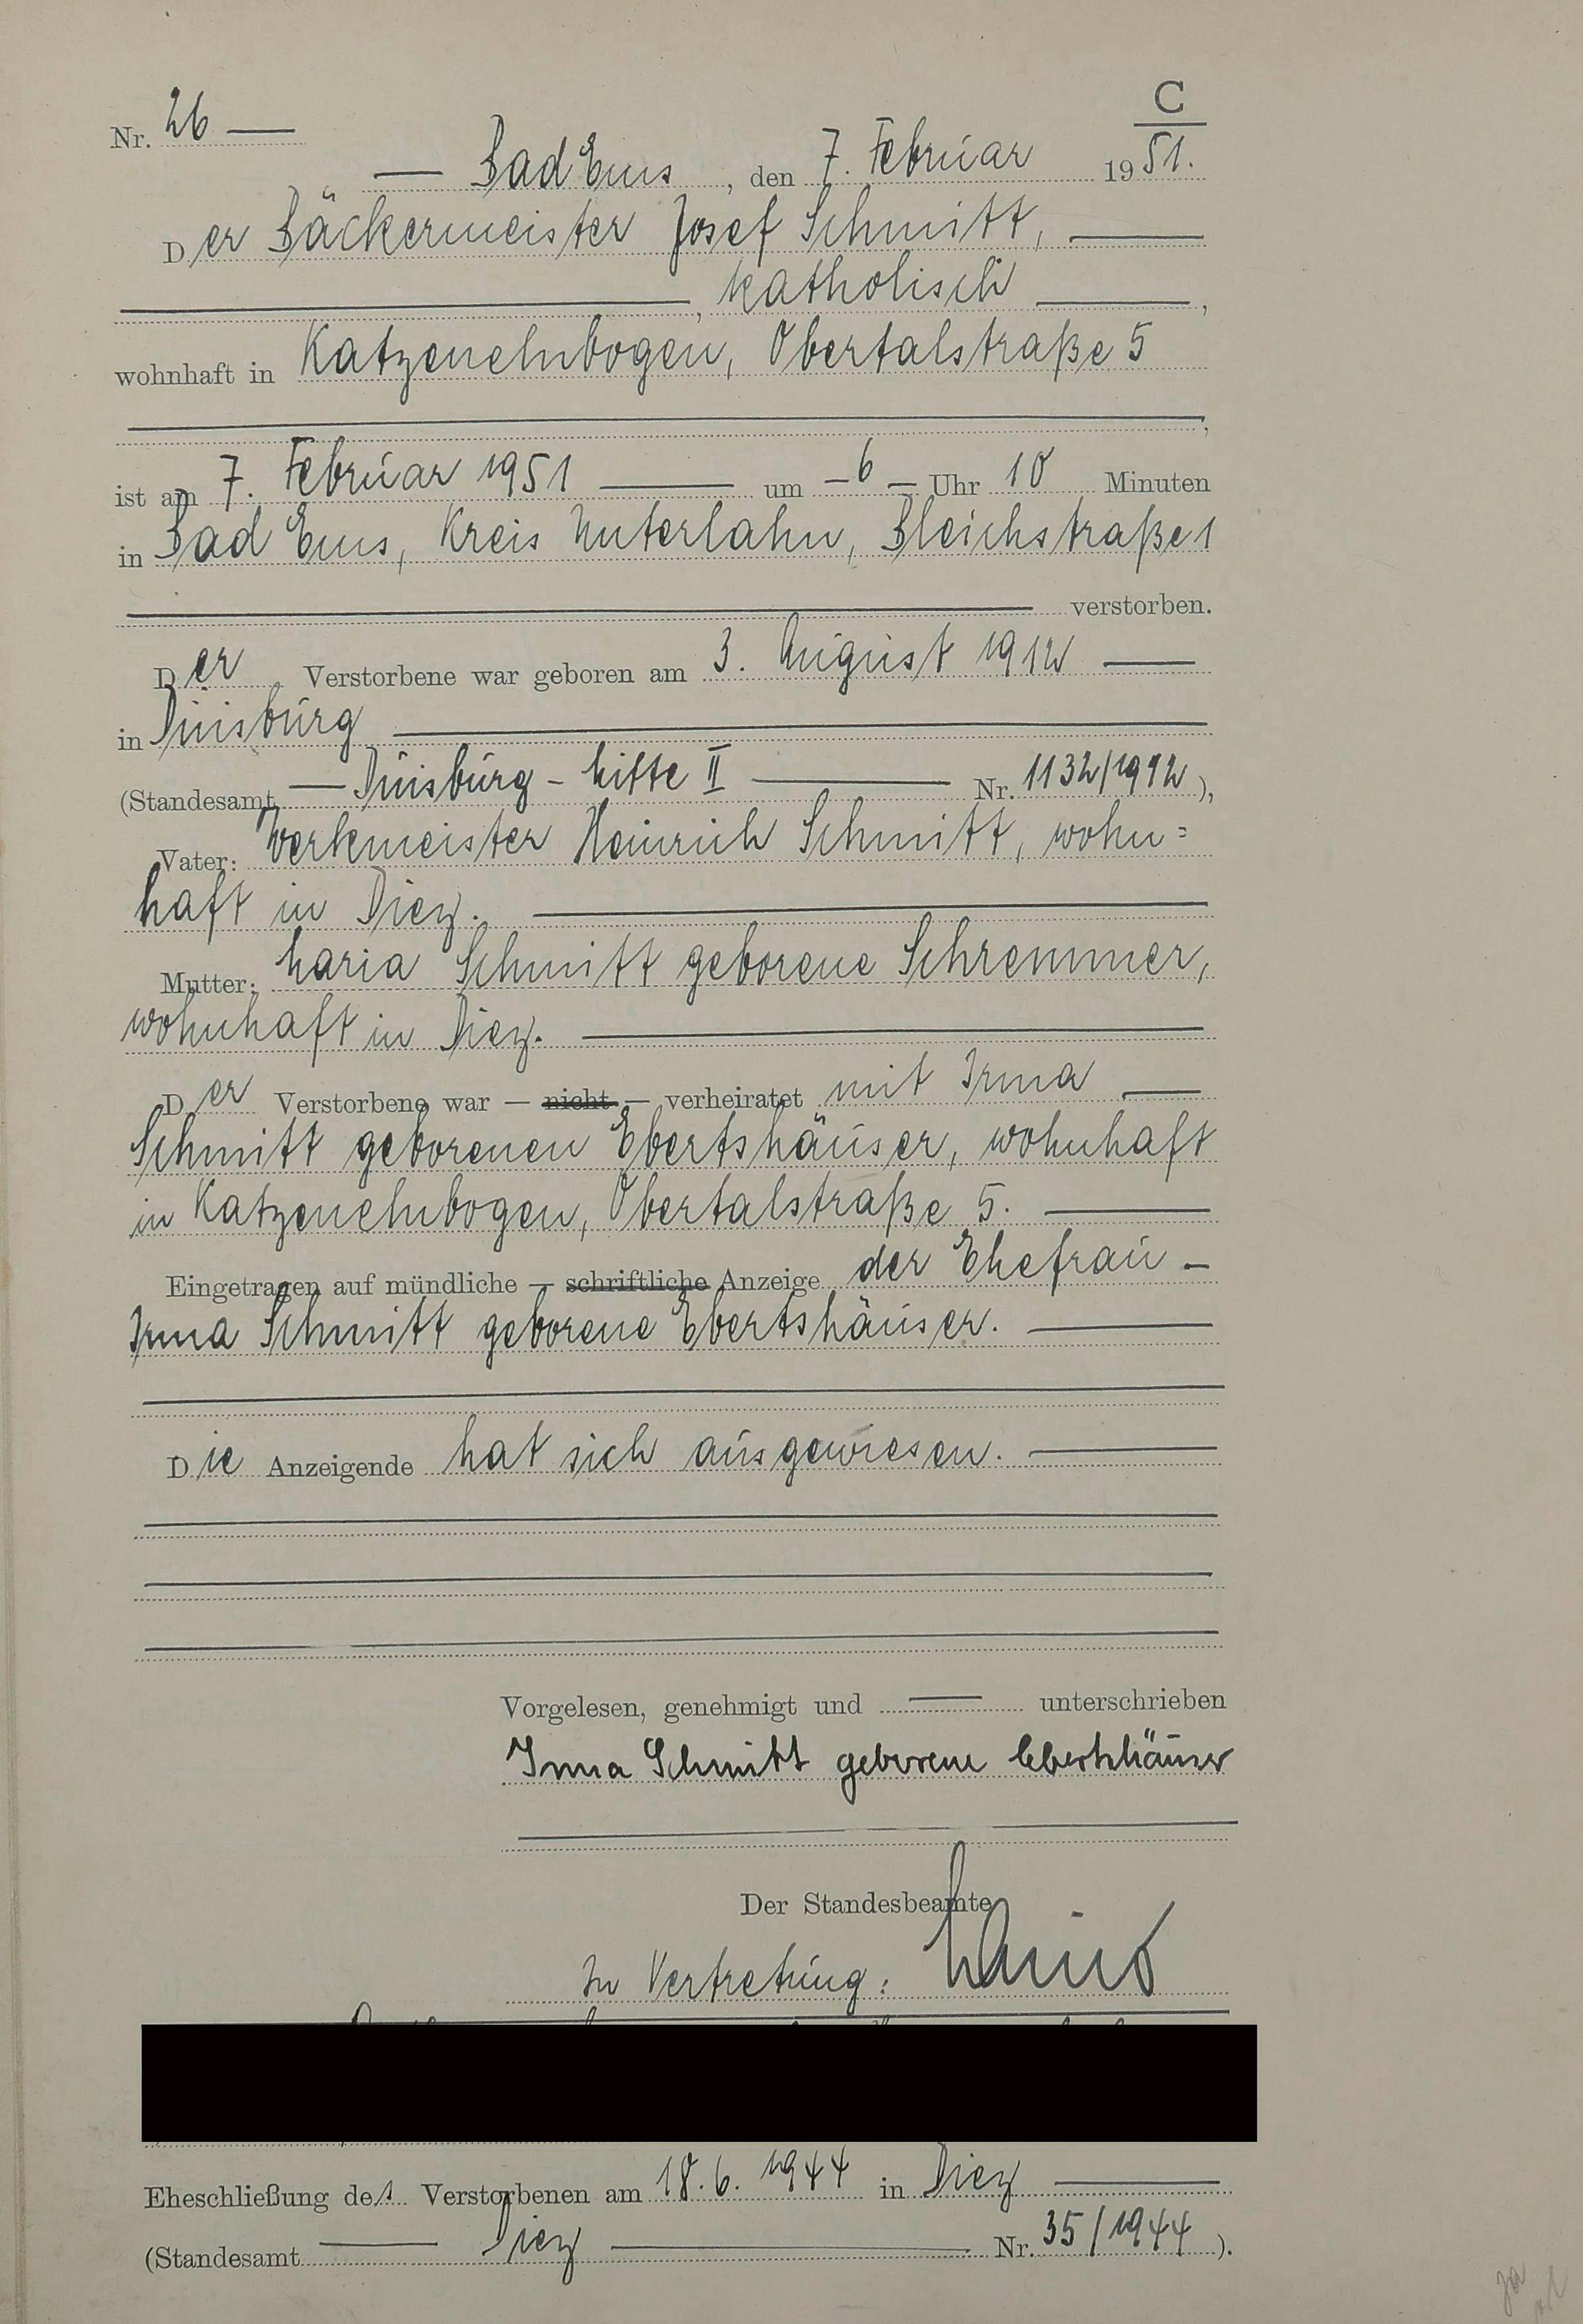 C
Nr. 26 —
— Bad Ems, den 7. Februar 1951.
Der Bäckermeister Josef Schmitt, —
—, katholisch —,
wohnhaft in Katzenelnbogen, Obertalstraße 5
—,
ist am 7. Februar 1951 — um — 6 — Uhr 10 Minuten
in Bad Ems, Kreis Unterlahn, Bleichstraße 1
— verstorben.
Der Verstorbene war geboren am 3. August 1912 —
in Duisburg —
(Standesamt — Duisburg - Mitte II — Nr. 1132/1912),
Vater: Werkmeister Heinrich Schmitt, wohn=
haft in Diez. —
Mutter: Maria Schmitt geborene Schremmer,
wohnhaft in Diez. —
Der Verstorbene war — nicht — verheiratet mit Irma —
Schmitt geborenen Ebertshäuser, wohnhaft
in Katzenelnbogen, Obertalstraße 5. —
Eingetragen auf mündliche — schriftliche Anzeige der Ehefrau —
Irma Schmitt geborene Ebertshäuser. —
Die Anzeigende hat sich ausgewiesen. —
Vorgelesen, genehmigt und — unterschrieben
Irma Schmitt geborene Ebertshäuser
Der Standesbeamte
In Vertretung:
Eheschließung des Verstorbenen am 18.6.1944 in Diez —
(Standesamt — Diez — Nr. 35/1944).